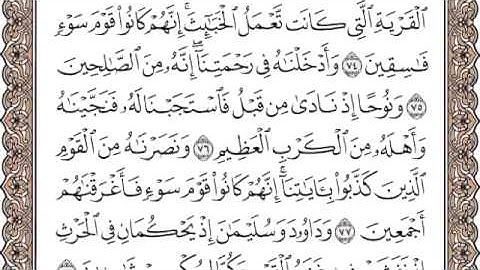 ٱلْقَرْيَةِ ٱلَّتِى كَانَت تَّعْمَلُ ٱلْخَبَـٰٓئِثَ ۚ إِنَّهُمْ كَانُوا۟ قَوْمَ سَوْءٍ
فَـٰسِقِينَ ٧٤ وَأَدْخَلْنَـٰهُ فِى رَحْمَتِنَآ ۖ إِنَّهُۥ مِنَ ٱلصَّـٰلِحِينَ
٧٥ وَنُوحًا إِذْ نَادَىٰ مِن قَبْلُ فَٱسْتَجَبْنَا لَهُۥ فَنَجَّيْنَـٰهُ
وَأَهْلَهُۥ مِنَ ٱلْكَرْبِ ٱلْعَظِيمِ ٧٦ وَنَصَرْنَـٰهُ مِنَ ٱلْقَوْمِ
ٱلَّذِينَ كَذَّبُوا۟ بِـَٔايَـٰتِنَآ ۚ إِنَّهُمْ كَانُوا۟ قَوْمَ سَوْءٍ فَأَغْرَقْنَـٰهُمْ
أَجْمَعِينَ ٧٧ وَدَاوُۥدَ وَسُلَيْمَـٰنَ إِذْ يَحْكُمَانِ فِى ٱلْحَرْثِ